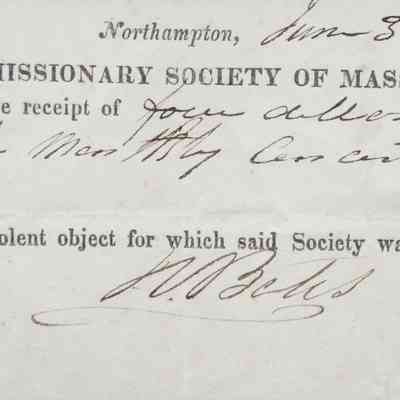 Northampton, June 3
MISSIONARY SOCIETY OF MASS
e receipt of four dollar
Monthly Concer
olent object for which said Society wa